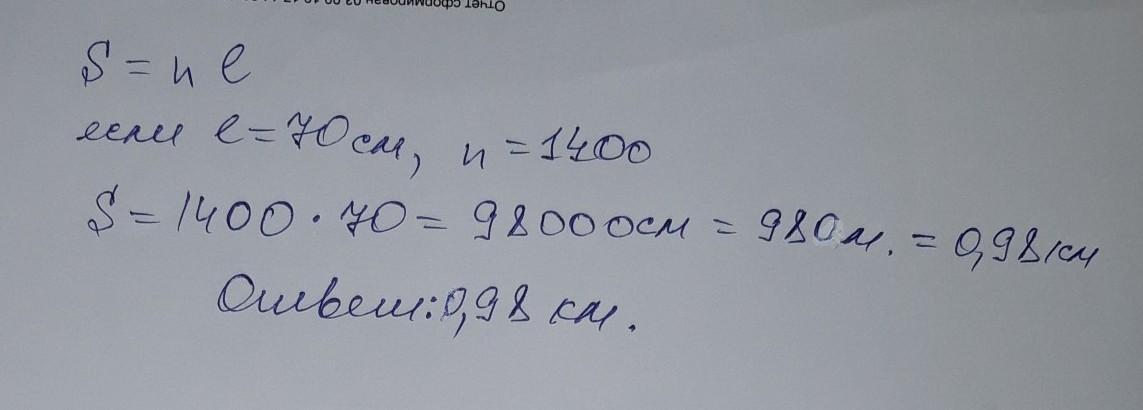 Отчет сформирован
S = n l
если l = 70 см, n = 1400
S = 1400 · 70 = 98000 см = 980 м. = 0,98 км
Ответ: 0,98 км.